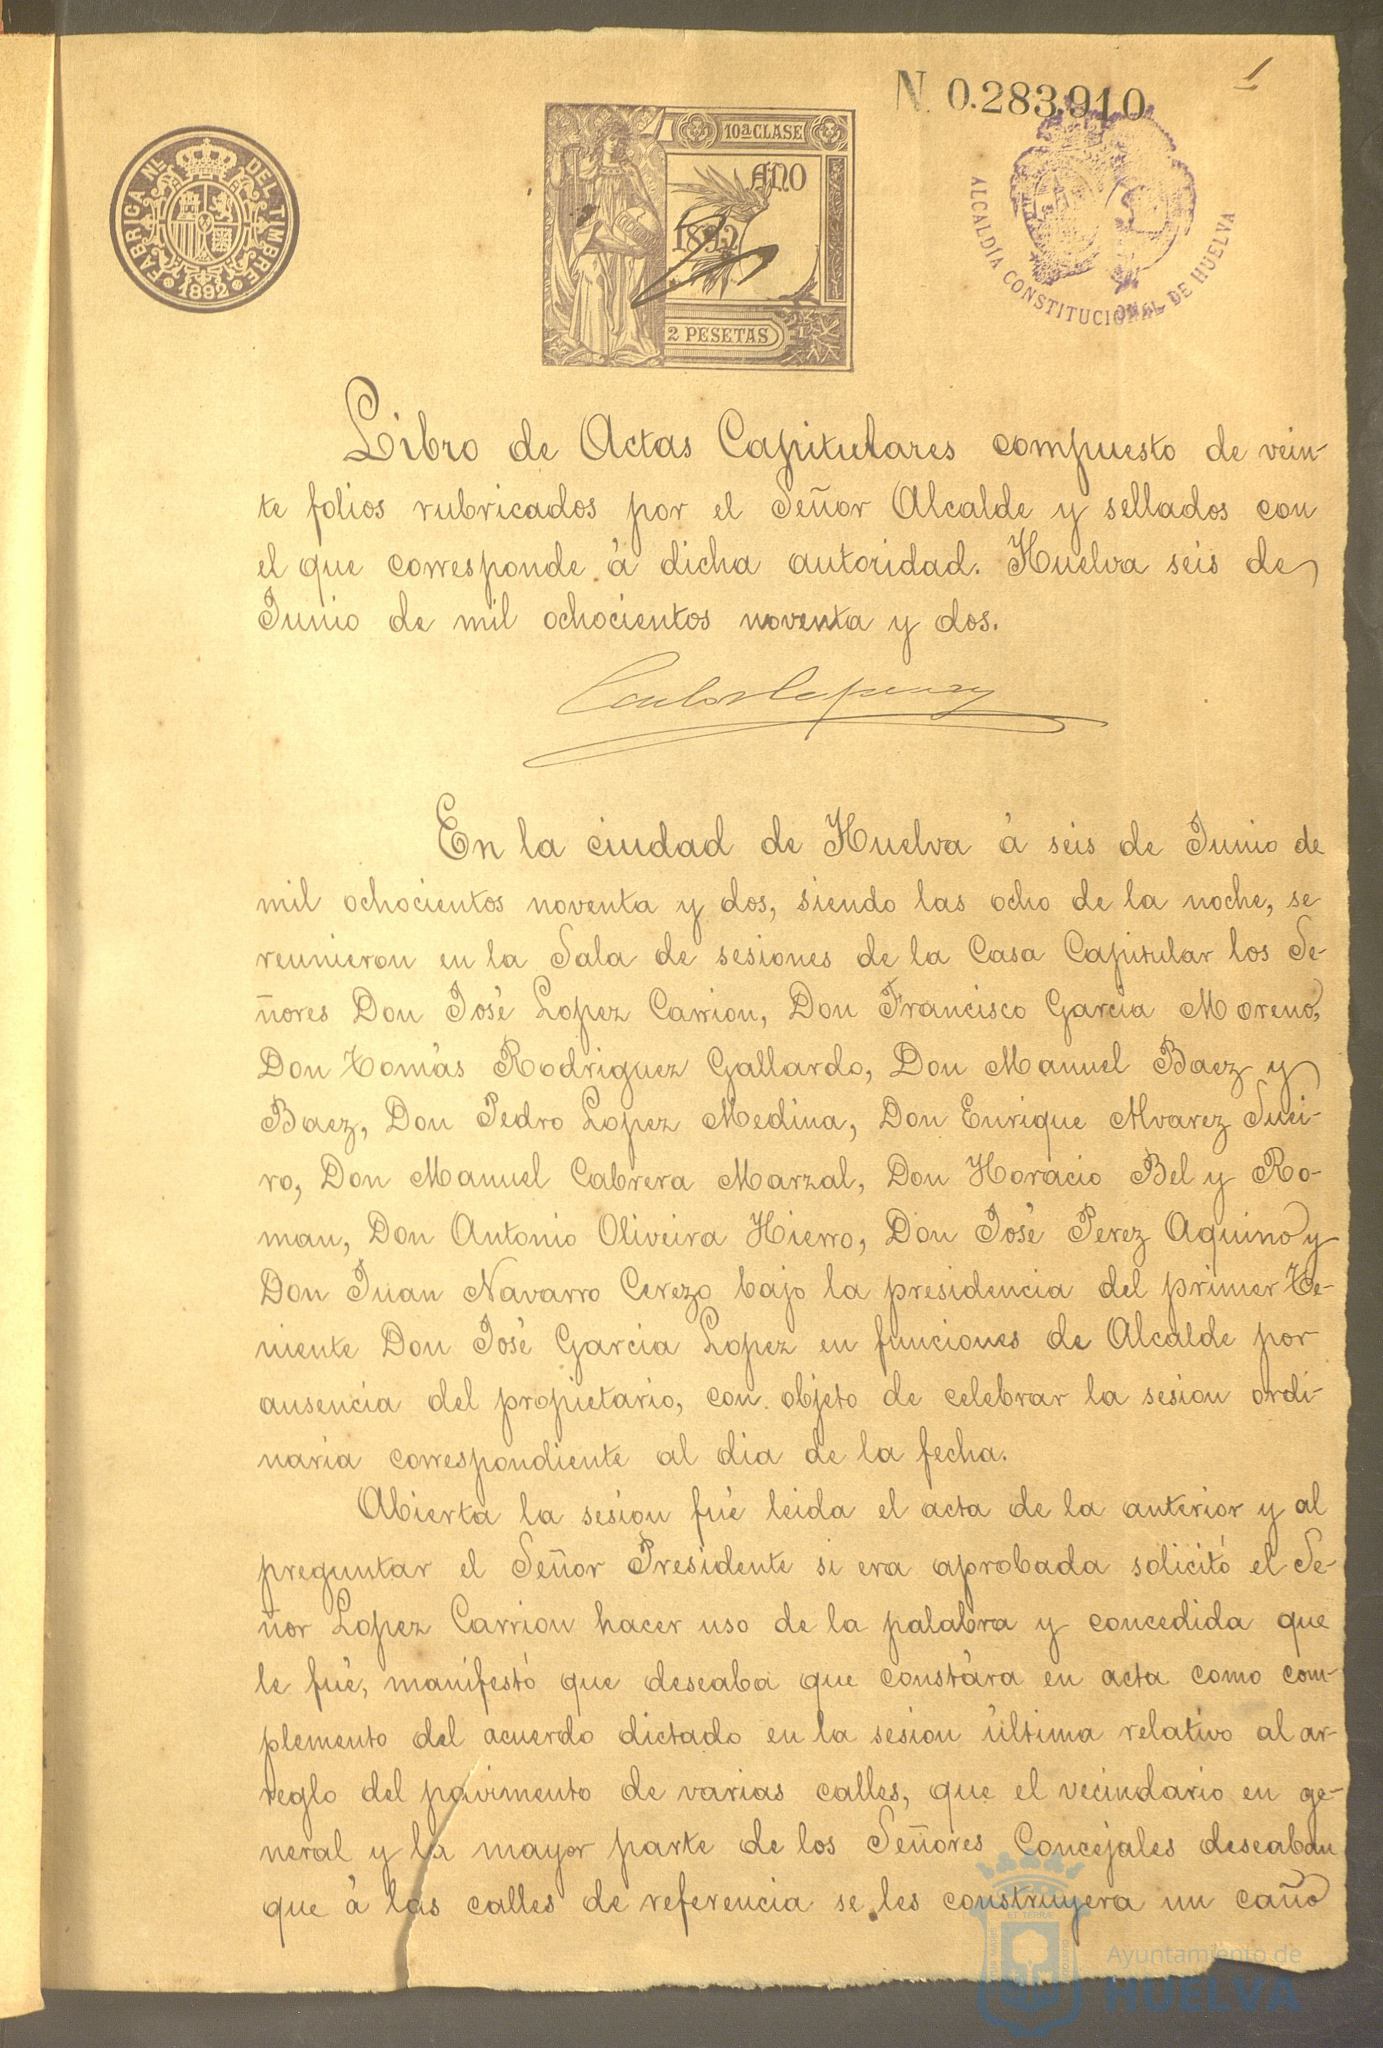 1
N. 0.283,910
FABRICA NL. DEL TIMBRE
1892
10ª CLASE
AÑO
1892
2 PESETAS
ALCALDÍA CONSTITUCIONAL DE HUELVA
Libro de Actas Capitulares compuesto de vein-
te folios rubricados por el Señor Alcalde y sellados con
el que corresponde á dicha autoridad. Huelva seis de
Junio de mil ochocientos noventa y dos.
En la ciudad de Huelva á seis de Junio de
mil ochocientos noventa y dos, siendo las ocho de la noche, se
reunieron en la Sala de sesiones de la Casa Capitular los Se-
ñores Don José Lopez Carrion, Don Francisco Garcia Moreno,
Don Tomás Rodriguez Gallardo, Don Manuel Baez y
Baez, Don Pedro Lopez Medina, Don Enrique Alvarez Suei-
ro, Don Manuel Cabrera Marzal, Don Horacio Bel y Ro-
man, Don Antonio Oliveira Hierro, Don José Perez Aquino y
Don Juan Navarro Cerezo bajo la presidencia del primer Te-
niente Don José Garcia Lopez en funciones de Alcalde por
ausencia del propietario, con objeto de celebrar la sesion ordi-
naria correspondiente al dia de la fecha.
Abierta la sesion fué leida el acta de la anterior y al
preguntar el Señor Presidente si era aprobada solicitó el Se-
ñor Lopez Carrion hacer uso de la palabra y concedida que
le fué, manifestó que deseaba que constára en acta como com-
plemento del acuerdo dictado en la sesion última relativo al ar-
reglo del pavimento de varias calles, que el vecindario en ge-
neral y la mayor parte de los Señores Concejales deseaban
que á las calles de referencia se les construyera un caño
Ayuntamiento de
HUELVA